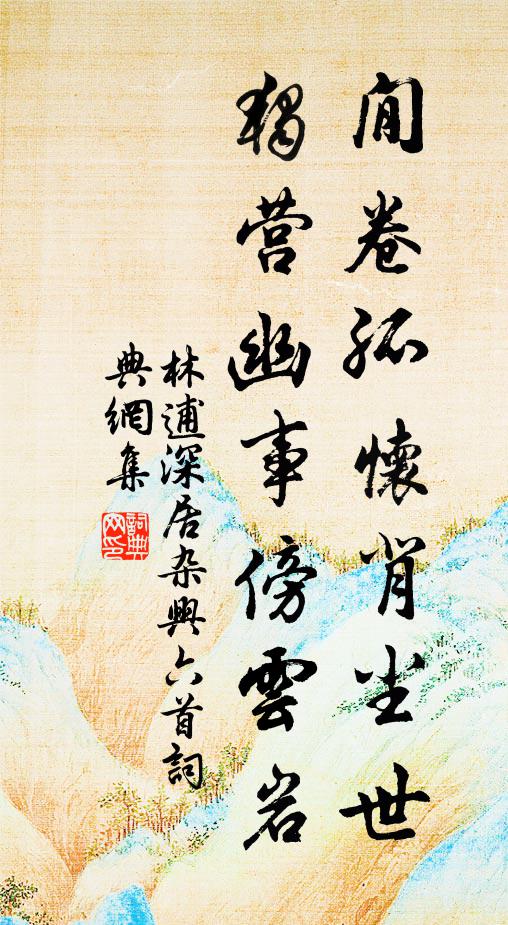 閒卷孤懷背尘世
獨营幽事傍雲岩
林逋深居杂興六首詞
典網集
詞典
网印